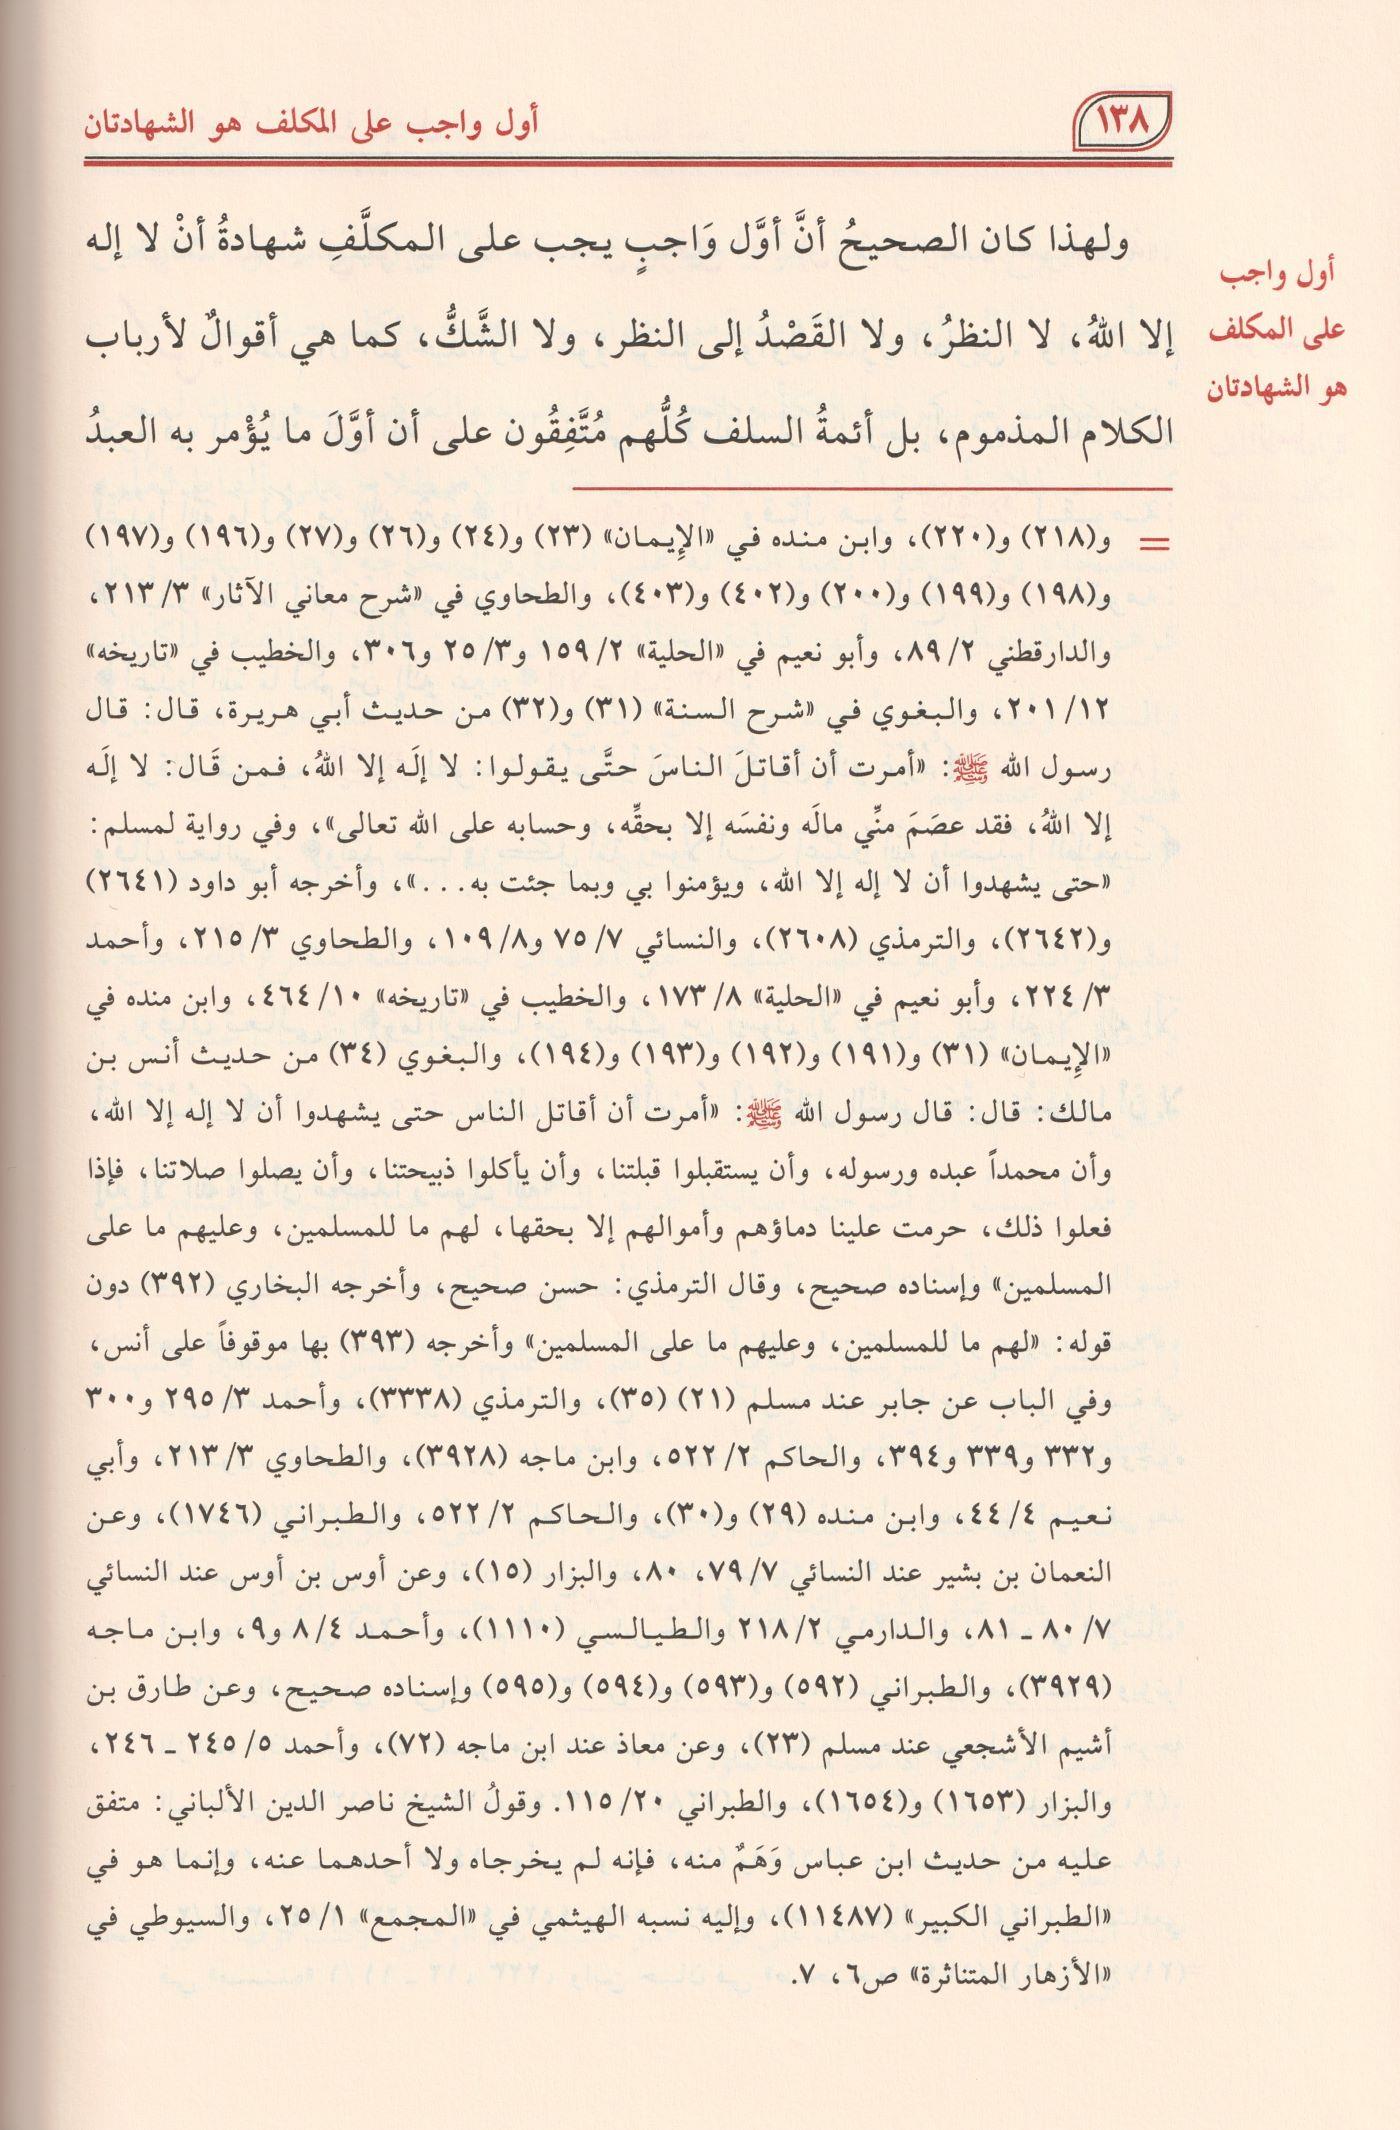 ١٣٨
أول واجب على المكلف هو الشهادتان
أول واجب
على المكلف
هو الشهادتان
ولهذا كان الصحيحُ أنَّ أوَّل وَاجبٍ يجب على المكلَّفِ شهادةُ أنْ لا إله
إلا اللهُ، لا النظرُ، ولا القَصْدُ إلى النظر، ولا الشَّكُّ، كما هي أقوالٌ لأرباب
الكلام المذموم، بل أئمةُ السلف كُلُّهم مُتَّفِقُون على أن أوَّلَ ما يُؤْمر به العبدُ
= و(٢١٨) و(٢٢٠)، وابن منده في «الإِيمان» (٢٣) و(٢٤) و(٢٦) و(٢٧) و(١٩٦) و(١٩٧)
و(١٩٨) و(١٩٩) و(٢٠٠) و(٤٠٢) و(٤٠٣)، والطحاوي في «شرح معاني الآثار» ٢١٣/٣،
والدارقطني ٨٩/٢، وأبو نعيم في «الحلية» ١٥٩/٢ و٢٥/٣ و٣٠٦، والخطيب في «تاريخه»
٢٠١/١٢، والبغوي في «شرح السنة» (٣١) و(٣٢) من حديث أبي هريرة، قال: قال
رسول الله ﷺ: «أمرت أن أقاتلَ الناسَ حتَّى يقولوا: لا إلَه إلا اللهُ، فمن قَال: لا إلَه
إلا اللهُ، فقد عصَمَ منِّي مالَه ونفسَه إلا بحقِّه، وحسابه على الله تعالى»، وفي رواية لمسلم:
«حتى يشهدوا أن لا إله إلا الله، ويؤمنوا بي وبما جئت به...»، وأخرجه أبو داود (٢٦٤١)
و(٢٦٤٢)، والترمذي (٢٦٠٨)، والنسائي ٧٥/٧ و١٠٩/٨، والطحاوي ٢١٥/٣، وأحمد
٢٢٤/٣، وأبو نعيم في «الحلية» ١٧٣/٨، والخطيب في «تاريخه» ٤٦٤/١٠، وابن منده في
«الإِيمان» (٣١) و(١٩١) و(١٩٢) و(١٩٣) و(١٩٤)، والبغوي (٣٤) من حديث أنس بن
مالك: قال: قال رسول الله ﷺ: «أمرت أن أقاتل الناس حتى يشهدوا أن لا إله إلا الله،
وأن محمداً عبده ورسوله، وأن يستقبلوا قبلتنا، وأن يأكلوا ذبيحتنا، وأن يصلوا صلاتنا، فإذا
فعلوا ذلك، حرمت علينا دماؤهم وأموالهم إلا بحقها، لهم ما للمسلمين، وعليهم ما على
المسلمين» وإسناده صحيح، وقال الترمذي: حسن صحيح، وأخرجه البخاري (٣٩٢) دون
قوله: «لهم ما للمسلمين، وعليهم ما على المسلمين» وأخرجه (٣٩٣) بها موقوفاً على أنس،
وفي الباب عن جابر عند مسلم (٢١) (٣٥)، والترمذي (٣٣٣٨)، وأحمد ٢٩٥/٣ و٣٠٠
و٣٣٢ و٣٣٩ و٣٩٤، والحاكم ٥٢٢/٢، وابن ماجه (٣٩٢٨)، والطحاوي ٢١٣/٣، وأبي
نعيم ٤٤/٤، وابن منده (٢٩) و(٣٠)، والحاكم ٥٢٢/٢، والطبراني (١٧٤٦)، وعن
النعمان بن بشير عند النسائي ٧٩/٧، ٨٠، والبزار (١٥)، وعن أوس بن أوس عند النسائي
٨٠/٧ ـ ٨١، والدارمي ٢١٨/٢ والطيالسي (١١١٠)، وأحمد ٨/٤ و٩، وابن ماجه
(٣٩٢٩)، والطبراني (٥٩٢) و(٥٩٣) و(٥٩٤) و(٥٩٥) وإسناده صحيح، وعن طارق بن
أشيم الأشجعي عند مسلم (٢٣)، وعن معاذ عند ابن ماجه (٧٢)، وأحمد ٢٤٥/٥ ـ ٢٤٦،
والبزار (١٦٥٣) و(١٦٥٤)، والطبراني ١١٥/٢٠. وقولُ الشيخ ناصر الدين الألباني: متفق
عليه من حديث ابن عباس وَهَمٌ منه، فإنه لم يخرجاه ولا أحدهما عنه، وإنما هو في
«الطبراني الكبير» (١١٤٨٧)، وإليه نسبه الهيثمي في «المجمع» ٢٥/١، والسيوطي في
«الأزهار المتناثرة» ص٦، ٧.